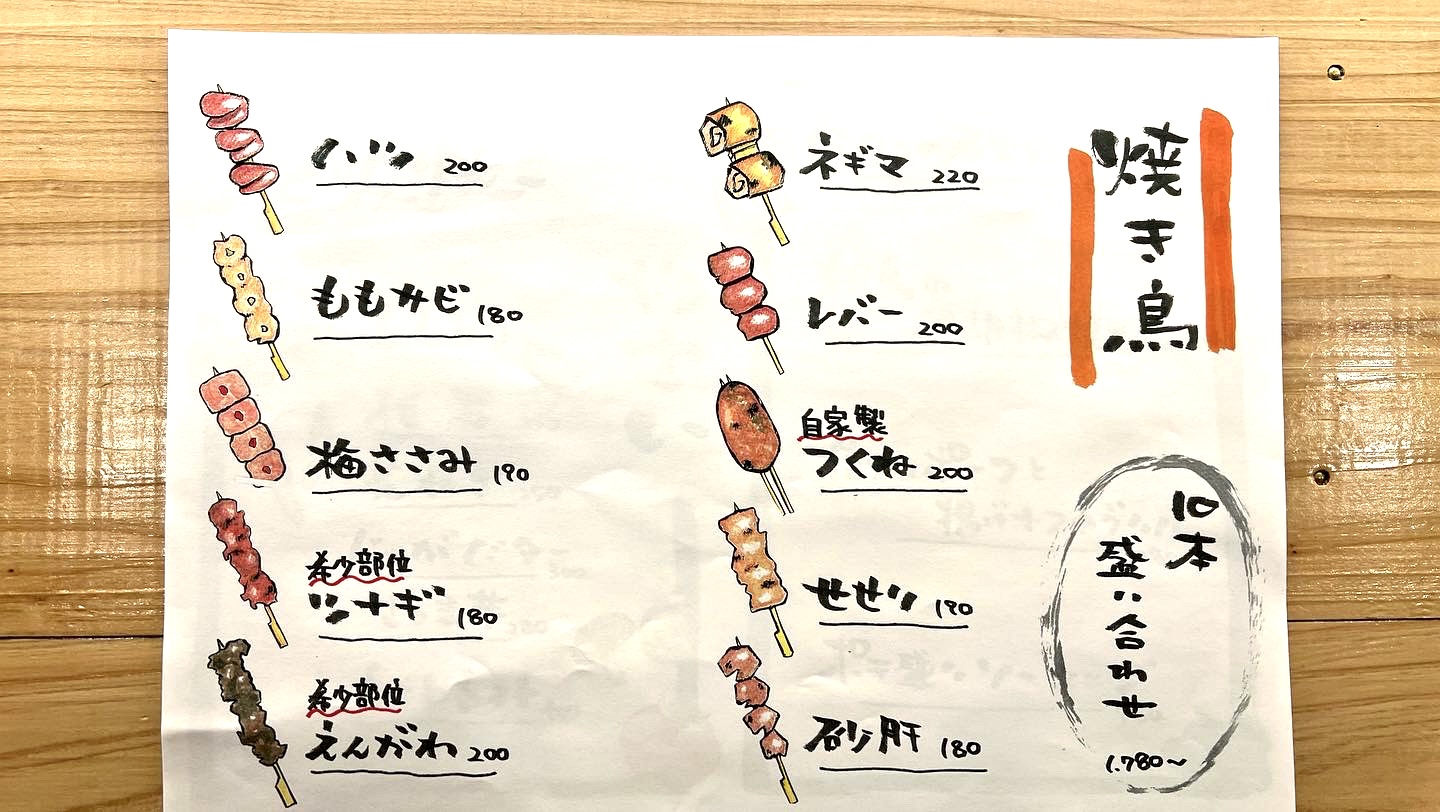 焼き鳥
10本
盛り合わせ
1.780〜
ネギマ 220
レバー 200
自家製
つくね 200
せせり 190
砂肝 180
ハツ 200
ももサビ 180
梅ささみ 190
希少部位
ツナギ 180
希少部位
えんがわ 200